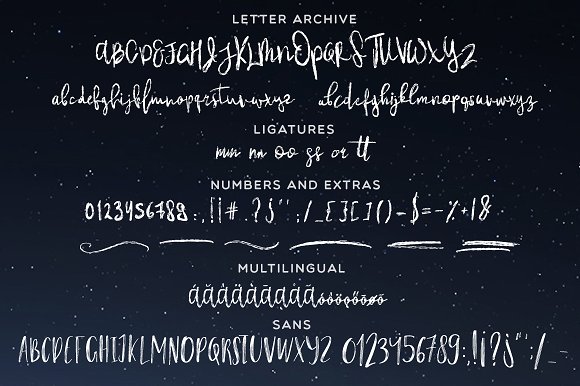 LETTER ARCHIVE
ABCDEFGHIJKLMNOPQRSTUVWXYZ
abcdefghijklmnopqrstuvwxyz abcdefghijklmnopqrstuvwxyz
LIGATURES
mm nn oo gs or tt
NUMBERS AND EXTRAS
0123456789:;,!¡#.?¿"';/_{}[]()-$=-%+&
MULTILINGUAL
SANS
ABCDEFGHIJKLMNOPQRSTUVWXYZ 0123456789:,!¡?¿"';/_-